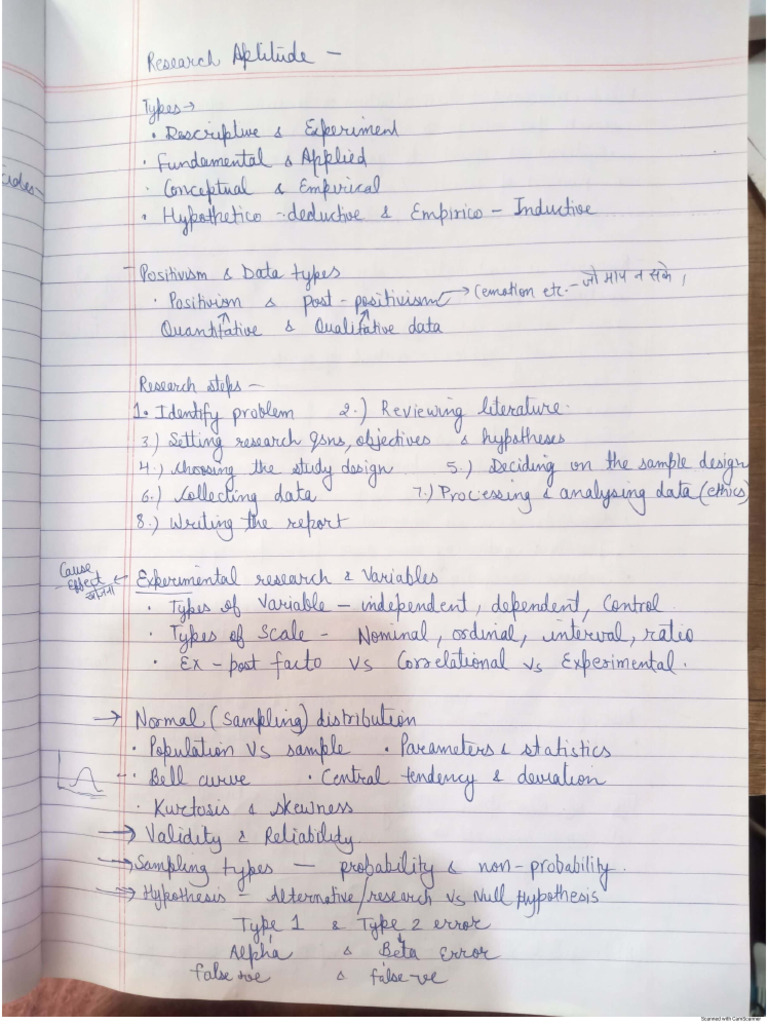 Research Aptitude –
Types →
• Descriptive & Experiment
• Fundamental & Applied
• Conceptual & Empirical
• Hypothetico-deductive & Empirico-Inductive
– Positivism & Data types
• Positivism & post-positivism → (emotion etc. – जो माप न सके।
Quantitative & Qualitative data
Research steps –
1. Identify problem 2.) Reviewing literature.
3.) Setting research qsns, objectives & hypotheses
4.) Choosing the study design 5.) Deciding on the sample design
6.) Collecting data 7.) Processing & analysing data (ethics)
8.) Writing the report
Cause
Effect ← Experimental research & Variables
• Types of Variable – independent, dependent, Control
• Types of Scale – Nominal, ordinal, interval, ratio
• Ex-post facto vs Correlational vs Experimental.
→ Normal (Sampling) distribution
• Population vs sample • Parameters & statistics
• Bell curve • Central tendency & deviation
• Kurtosis & skewness
→ Validity & Reliability
→ Sampling types – probability & non-probability.
⇒ Hypothesis – Alternative/research vs Null Hypothesis
Type 1 & Type 2 error
Alpha & Beta Error
false +ve & false -ve
Scanned with CamScanner